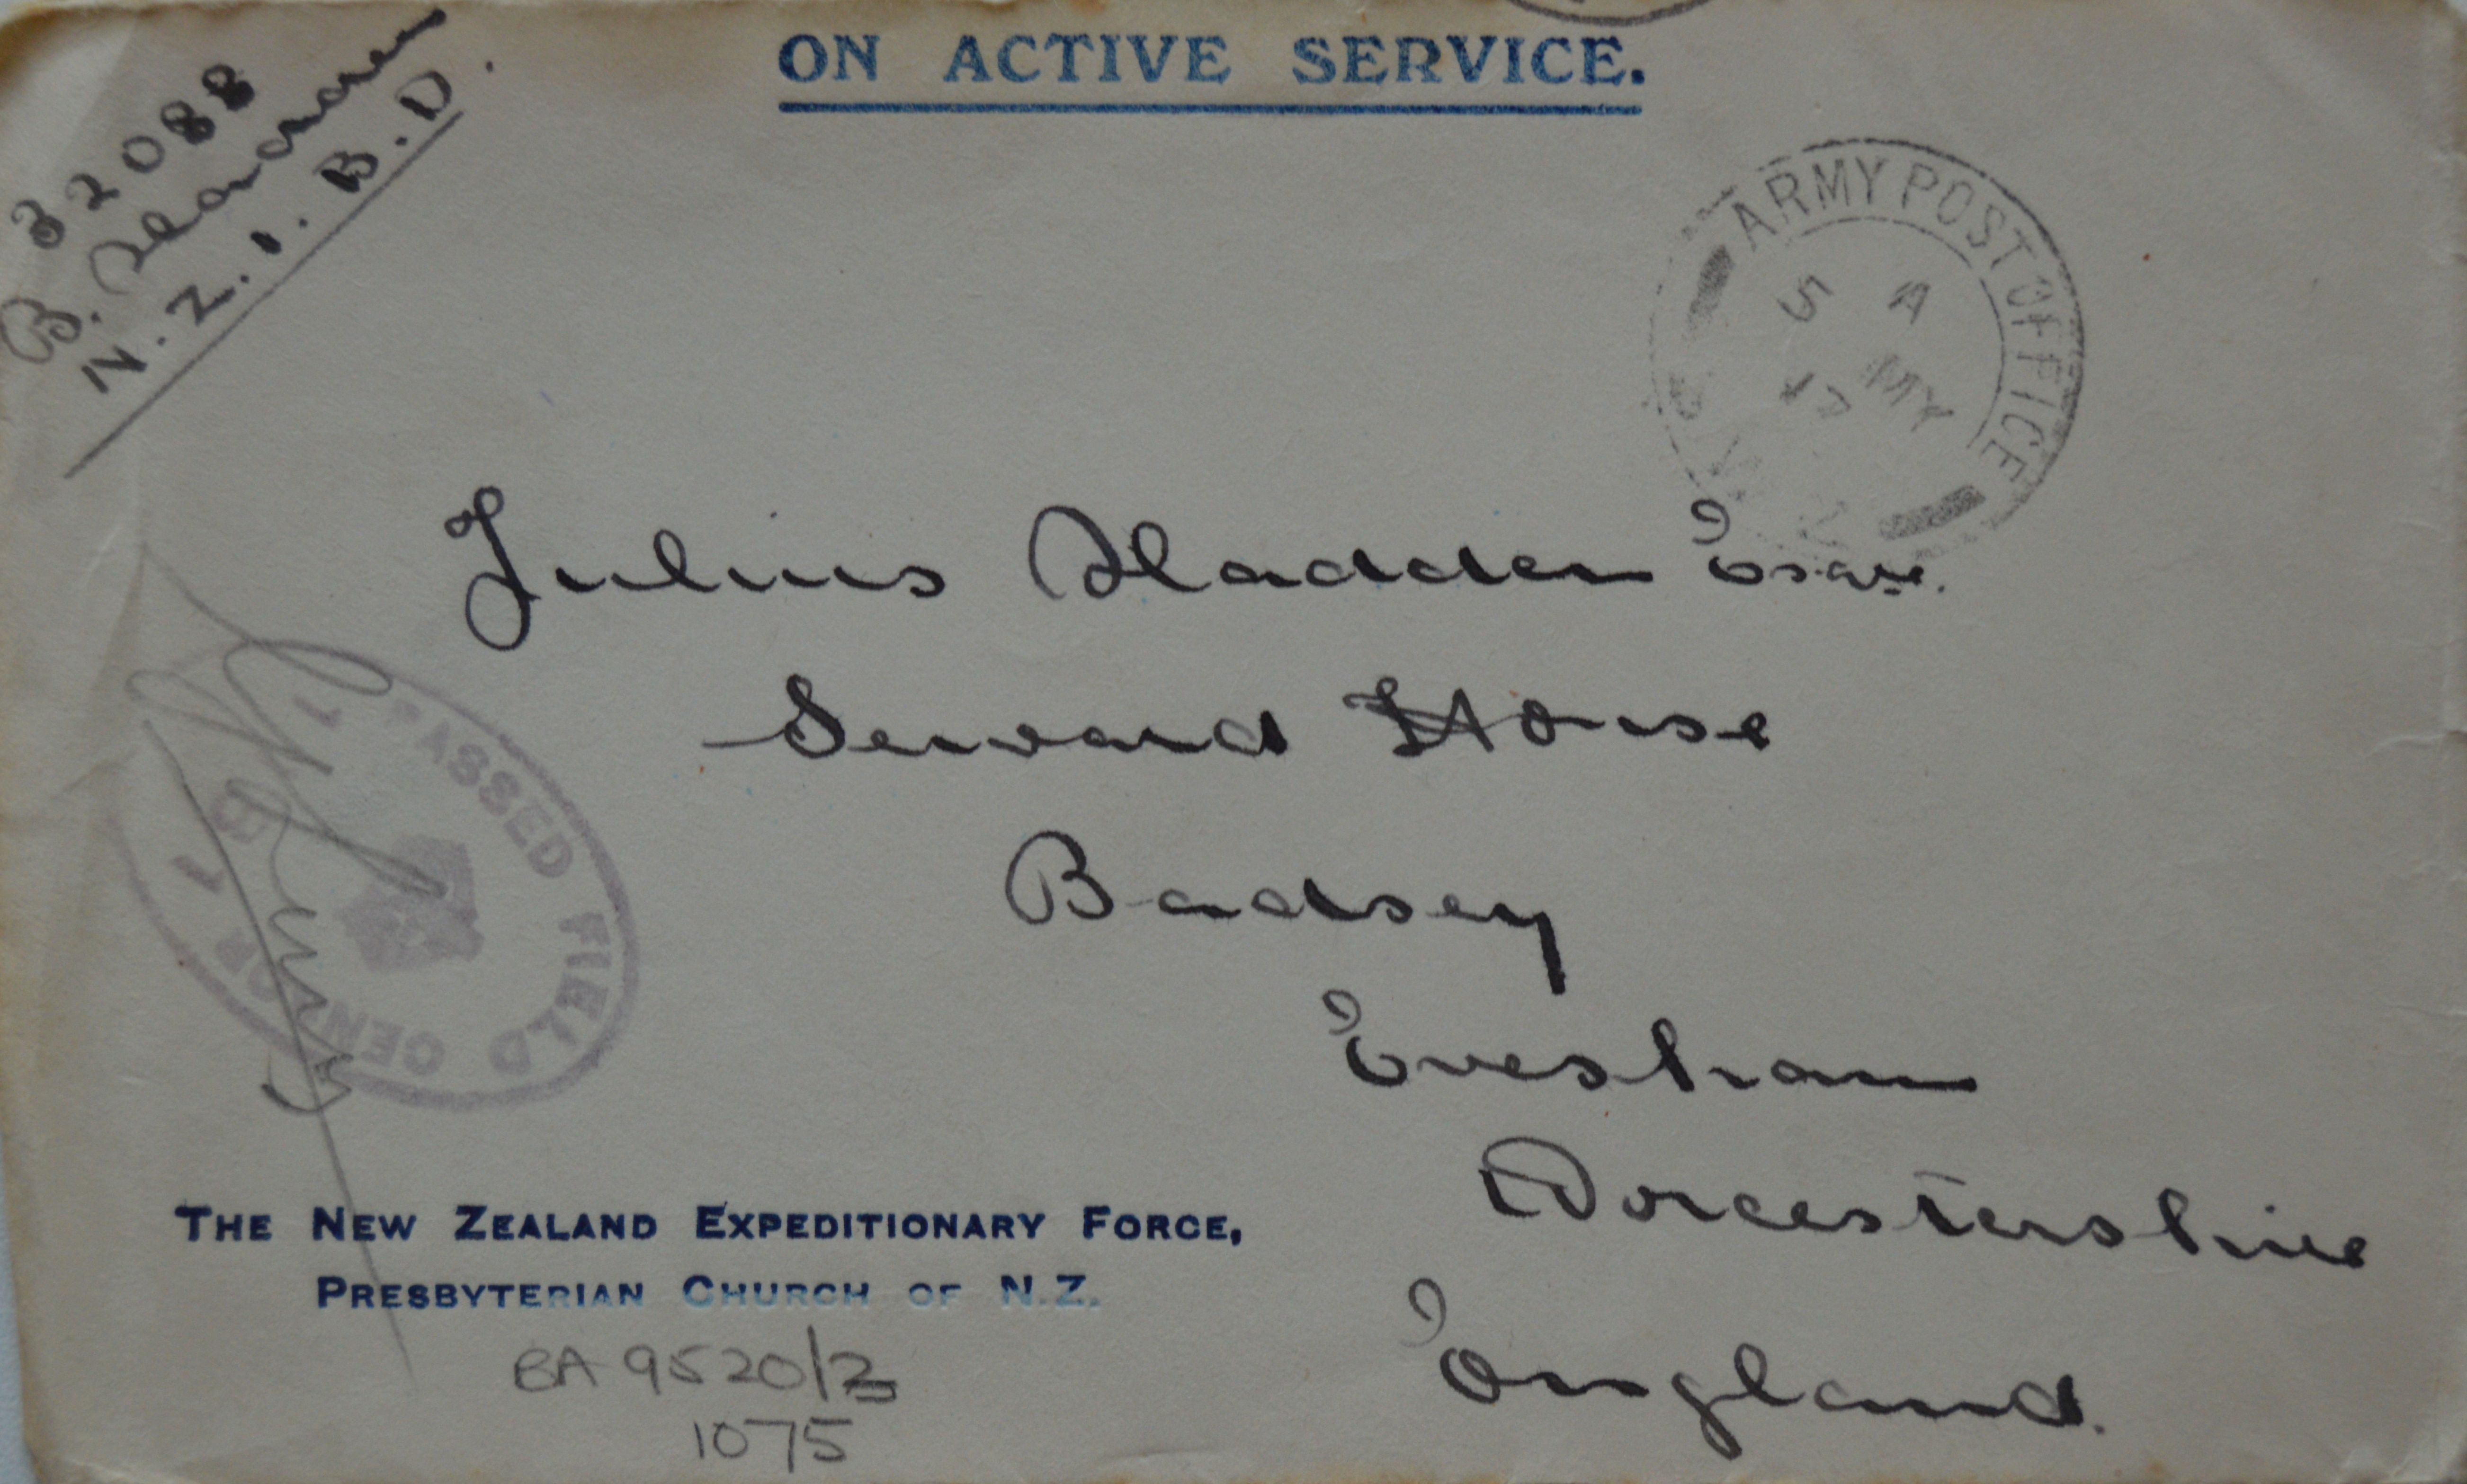 ON ACTIVE SERVICE.
32088
B.
N.Z.I.B.D.
ARMY POST OFFICE
A
5 MY
17
Julius Sladden Esqre.
Seward House
Badsey
Evesham
Worcestershire
England.
PASSED FIELD CENSOR
THE NEW ZEALAND EXPEDITIONARY FORCE,
PRESBYTERIAN CHURCH OF N.Z.
BA 9520/2
1075